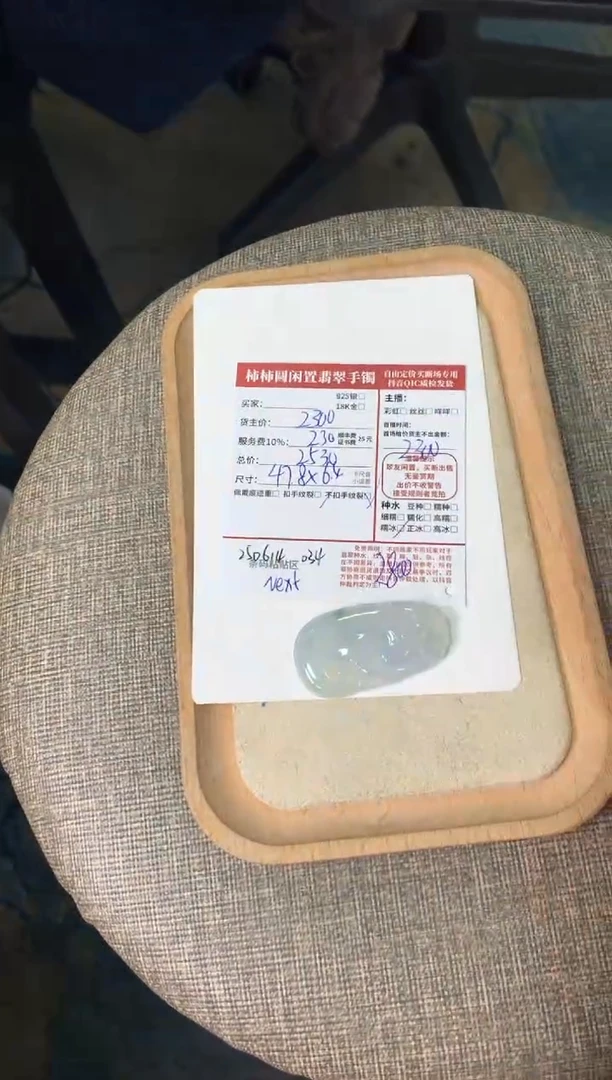 柿柿圓闲置翡翠手镯
自由定价买断场专用
抖音QIC质检发货
925银□
买家：
18K金□
货主价： 2300
服务费10%： 230 证书费 25元
总价： 2530
尺寸： 47.8×6.4
佩戴痕迹重□ 扣手纹裂□ 不扣手纹裂
主播：
彩虹□ 丝丝□ 咩咩□
首播时间：
首场给价货主不出金额：
2300
翠友闲置，买断出售
无鉴赏期
出价不收警告
接受规则者竞拍
种水 豆种□ 糯种□
细糯□ 糯化□ 高糯□
糯冰□ 正冰□ 高冰□
250614 034
条码粘贴区
Next
1800